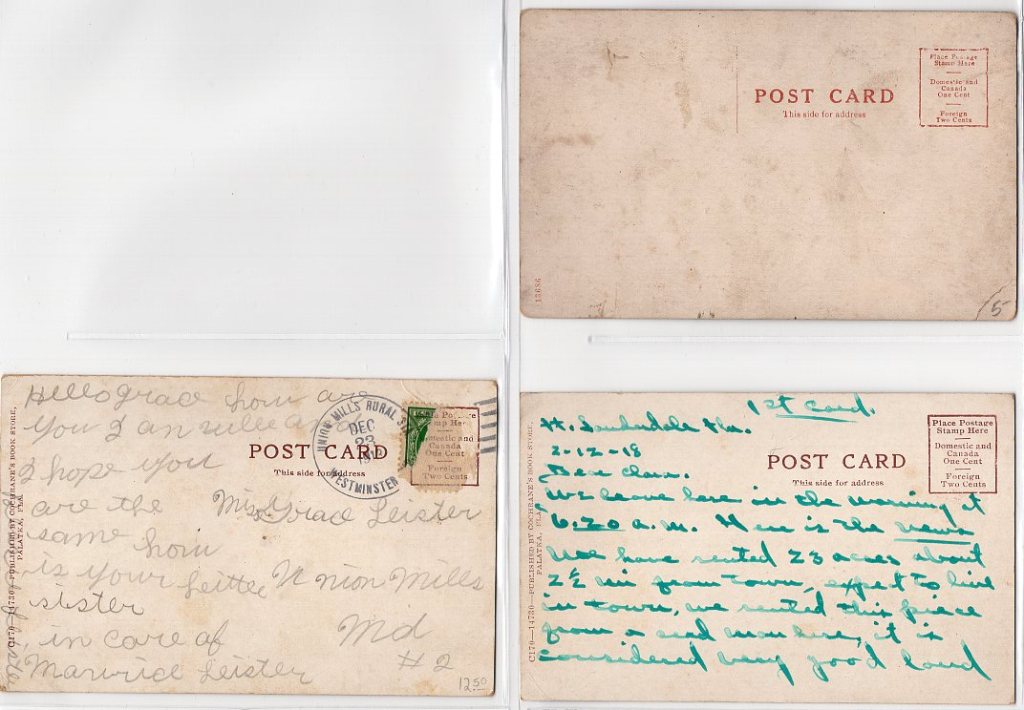 POST CARD
This side for address
Place Postage
Stamp Here
Domestic and
Canada
One Cent
Foreign
Two Cents
13686
15
Hello Grace how are
you I am
I hope you
are the
same how
is your Little
sister
in care of
Leister
C170—14730—PUBLISHED BY COCHRANE'S BOOK STORE,
PALATKA, FLA.
POST CARD
This side for address
UNION MILLS RURAL STA
DEC
23
WESTMINSTER
Place Postage
Stamp Here
Domestic and
Canada
One Cent
Foreign
Two Cents
Miss Grace Leister
Union Mills
Md
#2
12.50
1st card.
Ft. Lauderdale Fla.
2-12-18
Dear Clara.
We leave here in the morning at
6.20 a.m. Here is the news
We have rented 23 acres about
2½ mi from town, expect to live
in town, we rented this piece
from a real man here, it is
considered very good land
C170—14730—PUBLISHED BY COCHRANE'S BOOK STORE,
PALATKA, FLA.
POST CARD
This side for address
Place Postage
Stamp Here
Domestic and
Canada
One Cent
Foreign
Two Cents